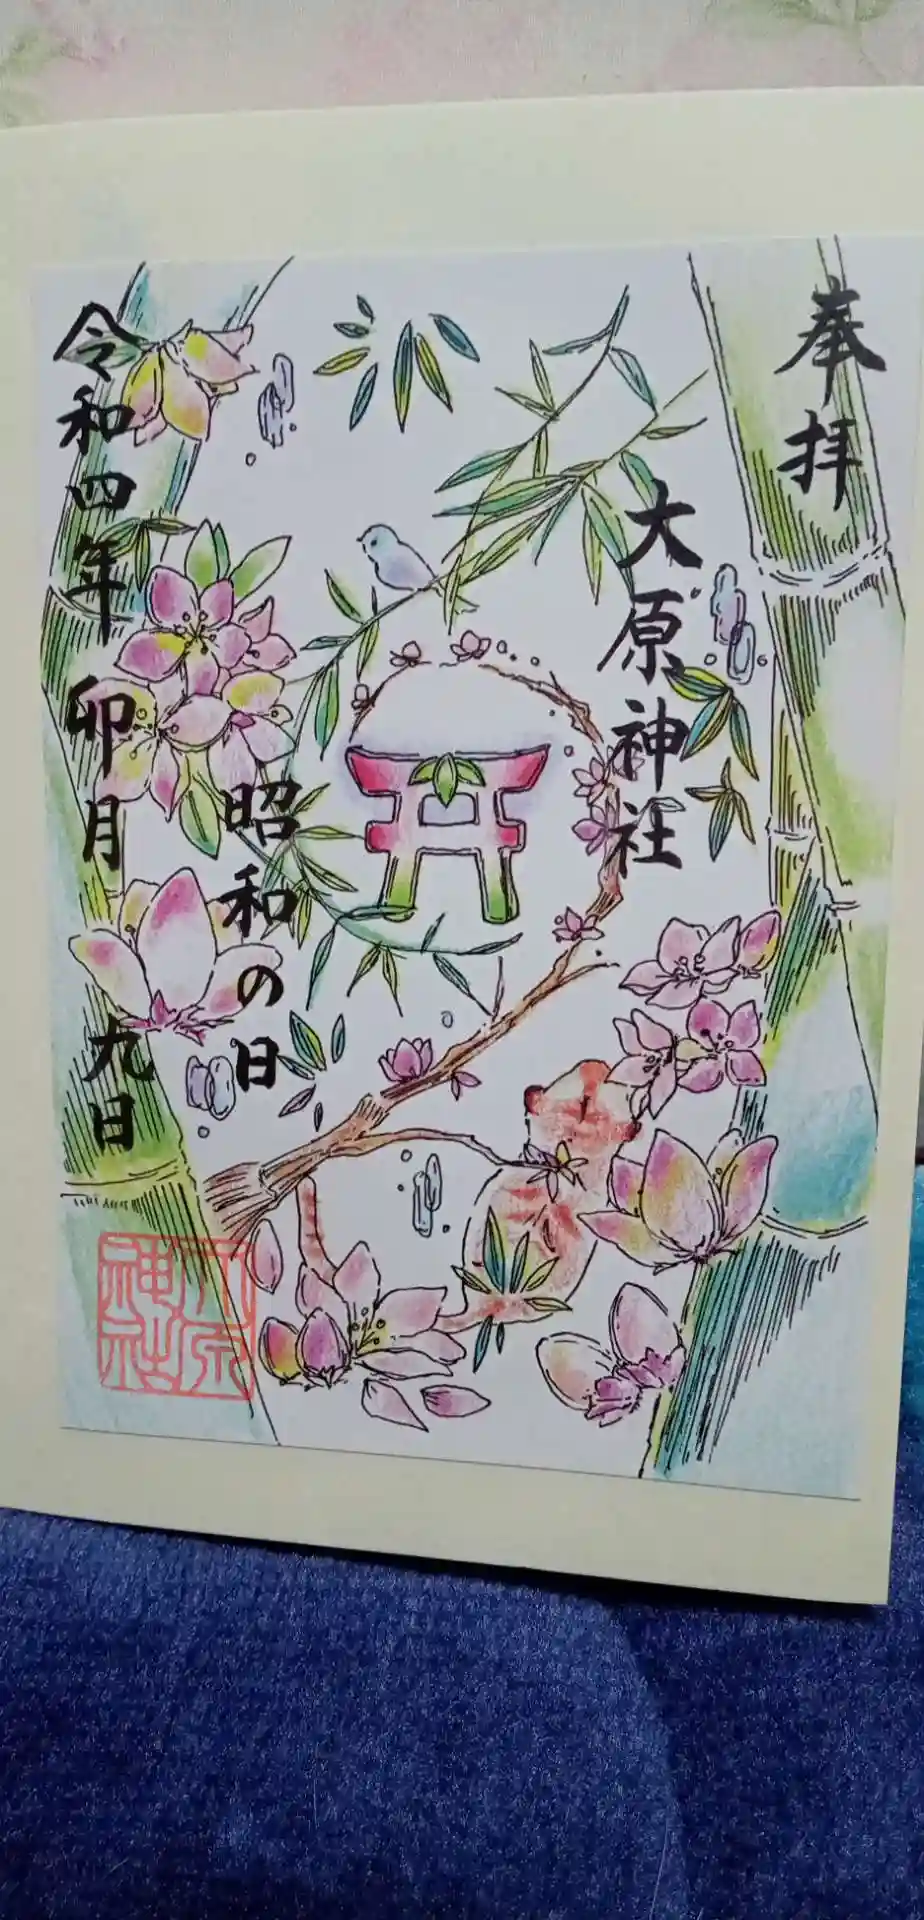 奉拝
大原神社
昭和の日
令和四年 卯月 九日